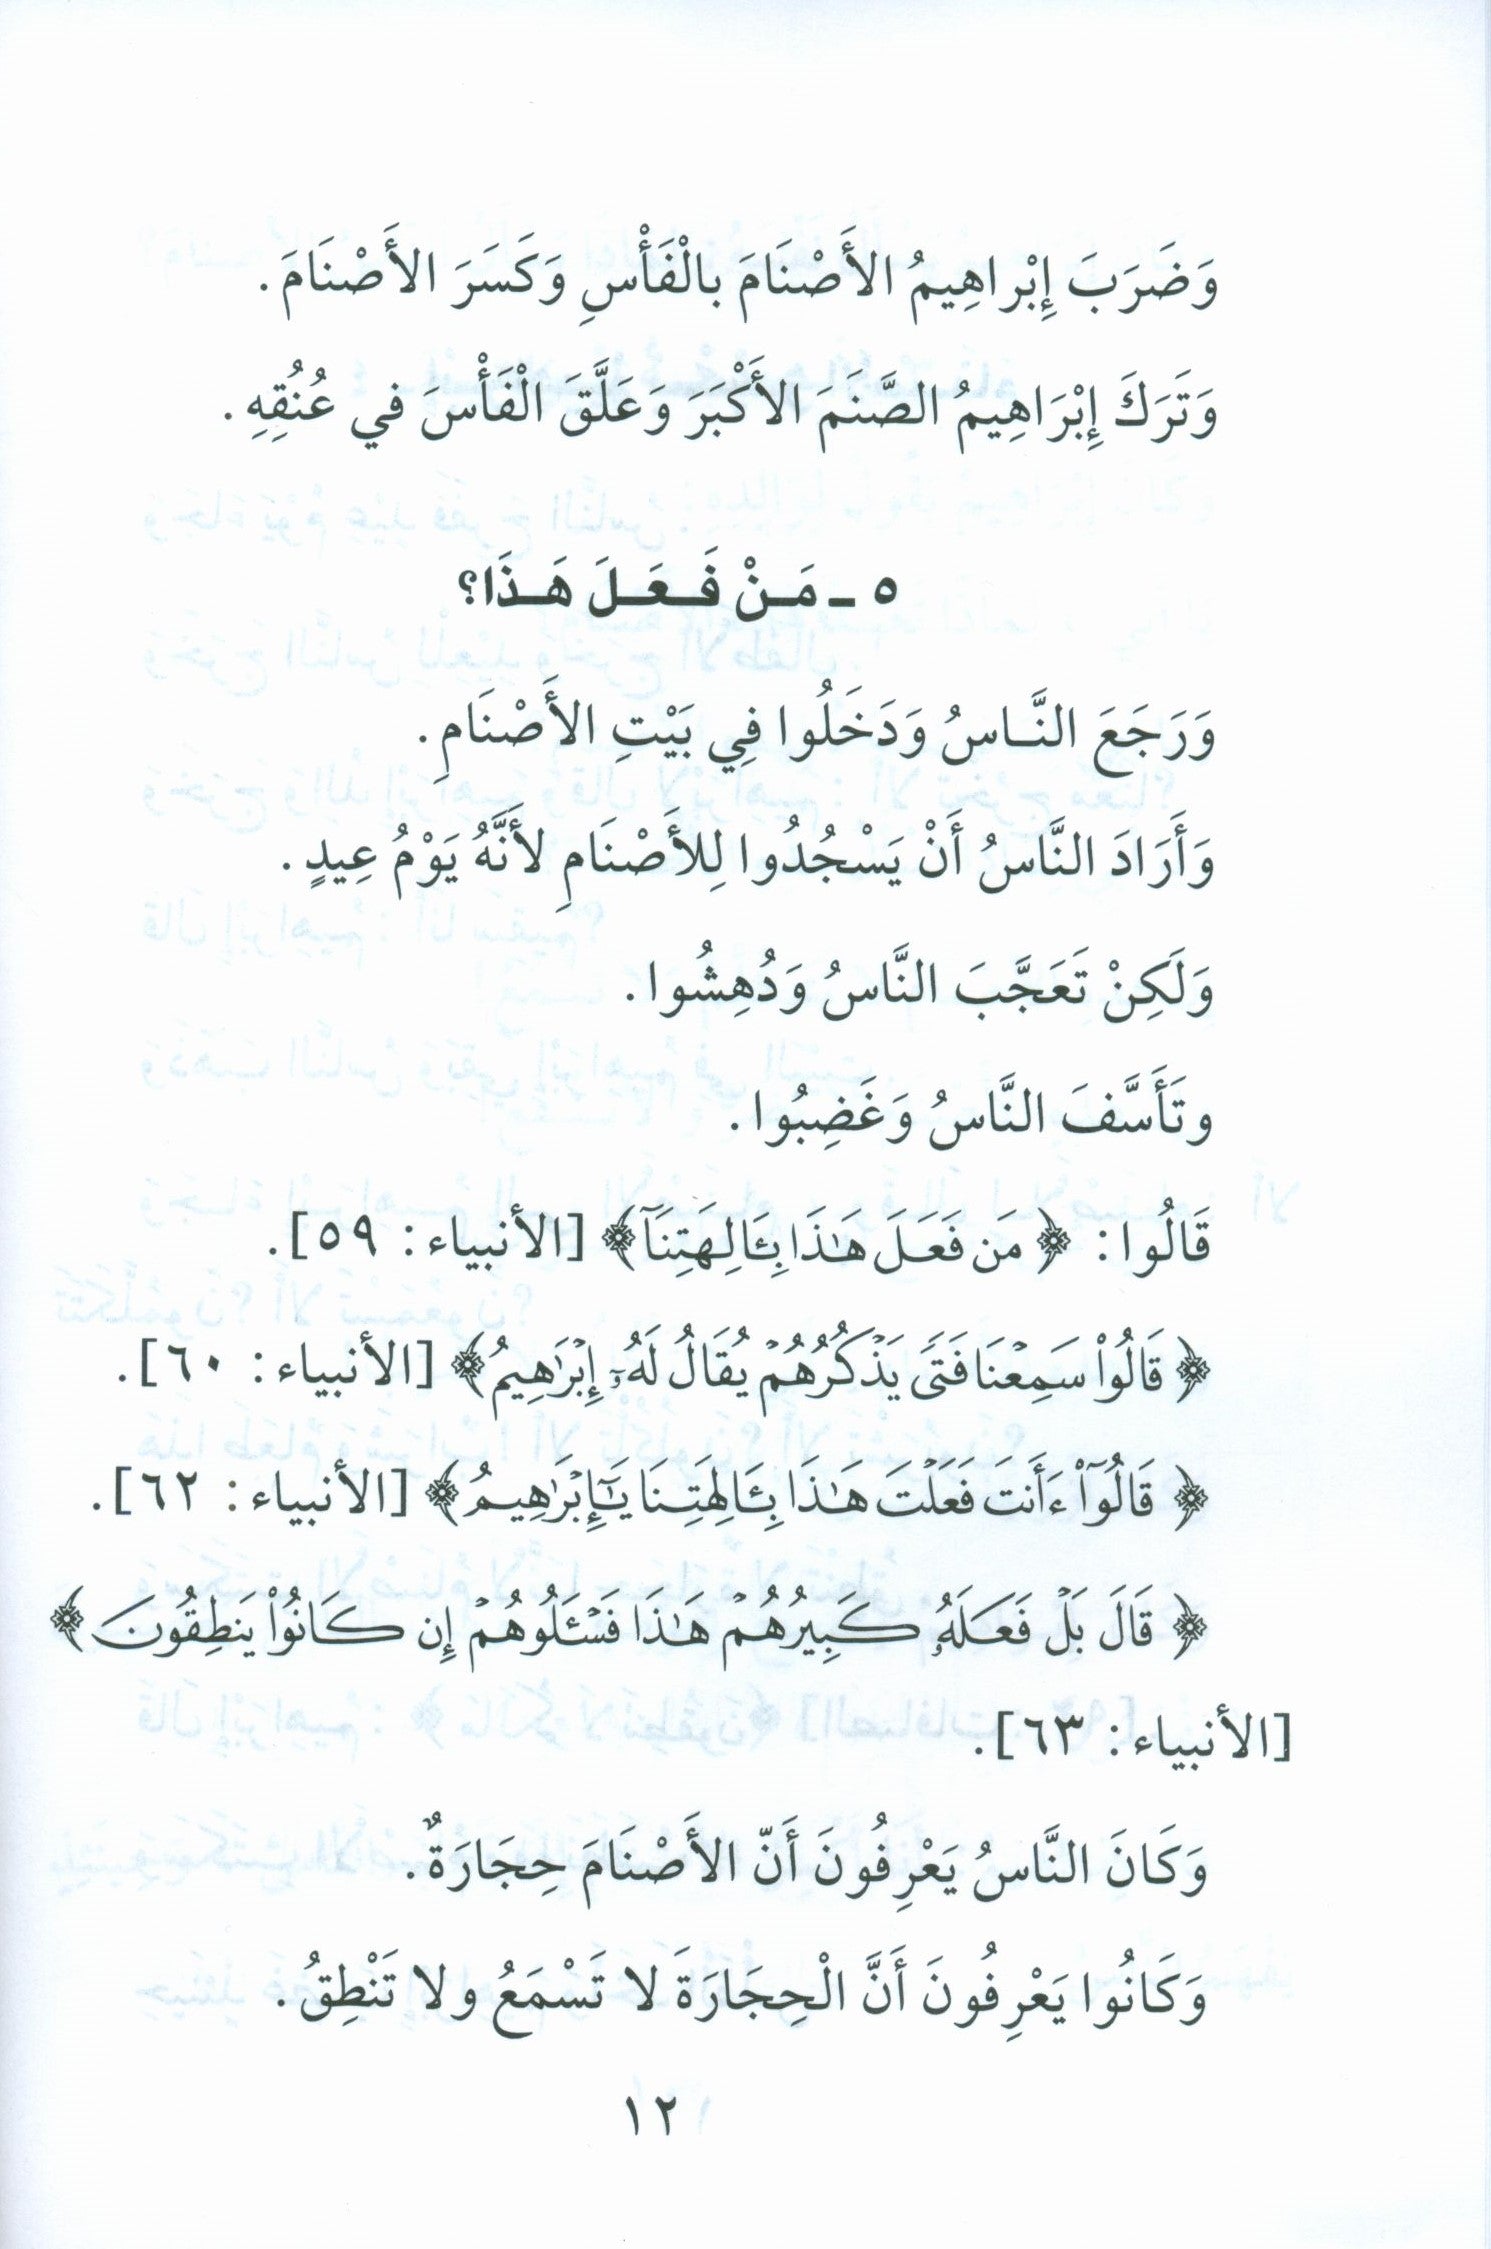 وَضَرَبَ إِبْراهِيمُ الأَصْنَامَ بالْفَأْسِ وَكَسَرَ الأَصْنَامَ.
وَتَرَكَ إِبْرَاهِيمُ الصَّنَمَ الأَكْبَرَ وَعَلَّقَ الْفَأْسَ في عُنُقِهِ.
٥ ـ مَـنْ فَـعَـلَ هَـذَا؟
وَرَجَعَ النَّـاسُ وَدَخَلُوا فِي بَيْتِ الأَصْنَامِ.
وَأَرَادَ النَّاسُ أَنْ يَسْجُدُوا لِلأَصْنَامِ لأَنَّهُ يَوْمُ عِيدٍ.
وَلَكِنْ تَعَجَّبَ النَّاسُ وَدُهِشُوا.
وتَأَسَّفَ النَّاسُ وَغَضِبُوا.
قَالُوا: ﴿مَن فَعَلَ هَٰذَا بِـَٔالِهَتِنَآ﴾ [الأنبياء: ٥٩].
﴿قَالُواْ سَمِعْنَا فَتًى يَذْكُرُهُمْ يُقَالُ لَهُۥٓ إِبْرَٰهِيمُ﴾ [الأنبياء: ٦٠].
﴿قَالُوٓاْ ءَأَنتَ فَعَلْتَ هَٰذَا بِـَٔالِهَتِنَا يَٰٓإِبْرَٰهِيمُ﴾ [الأنبياء: ٦٢].
﴿قَالَ بَلْ فَعَلَهُۥ كَبِيرُهُمْ هَٰذَا فَسْـَٔلُوهُمْ إِن كَانُواْ يَنطِقُونَ﴾
[الأنبياء: ٦٣].
وَكَانَ النَّاسُ يَعْرِفُونَ أَنّ الأَصْنَامَ حِجَارَةٌ.
وَكَانُوا يَعْرِفُونَ أَنَّ الْحِجَارَةَ لا تَسْمَعُ ولا تَنْطِقُ.
١٢